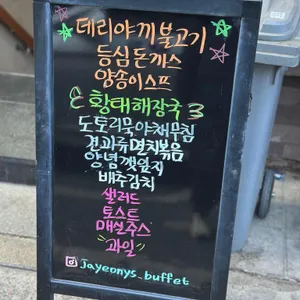 데리야끼불고기
등심돈까스
양송이스프
황태해장국
도토리묵야채무침
견과류멸치볶음
양념깻잎지
배추김치
샐러드
토스트
매실주스
"과일"
jayeonys_buffet